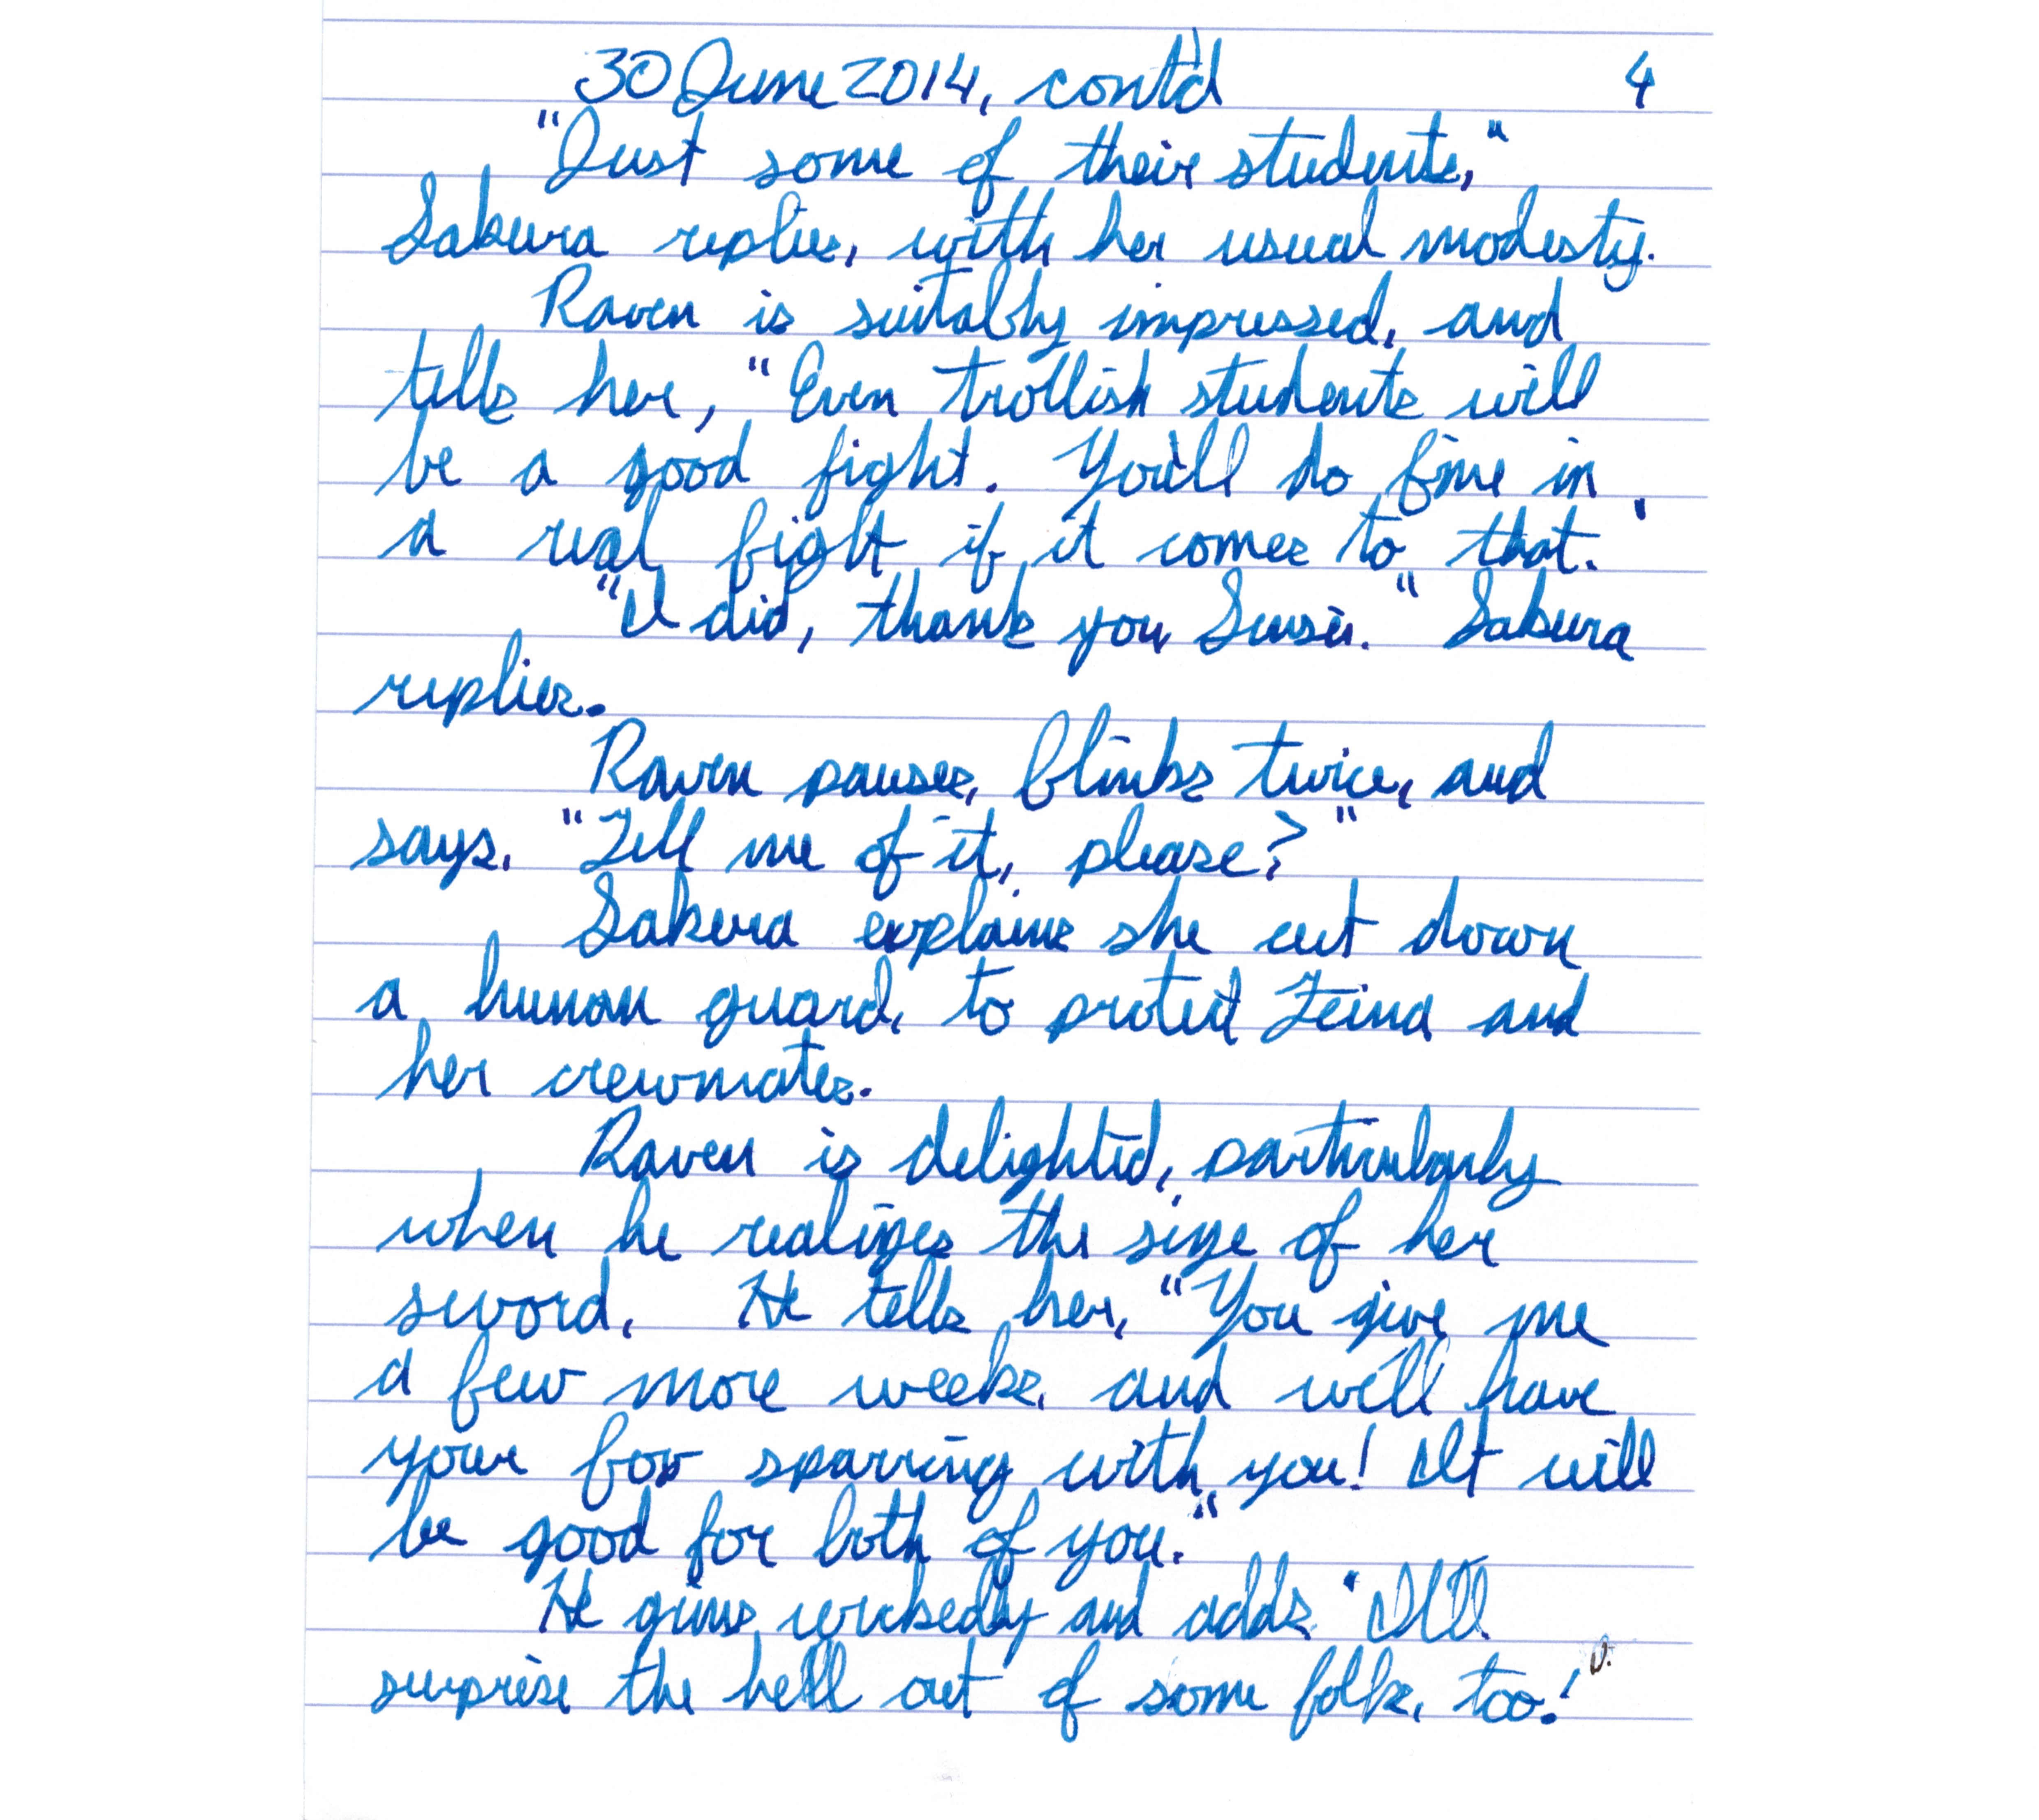 30 June 2014, cont'd 4
"Just some of their students,"
Sakura replies, with her usual modesty.
Raven is suitably impressed, and
tells her, "Even trollish students will
be a good fight. You'll do fine in
a real fight if it comes to that.'
"I did, thank you Sensei." Sakura
replies.
Raven pauses, blinks twice, and
says, "Tell me of it, please?"
Sakura explains she cut down
a human guard, to protect Zeina and
her crewmates.
Raven is delighted, particularly
when he realizes the size of her
sword. He tells her, "You give me
a few more weeks, and will have
your foo sparring with you! It will
be good for both of you."
He grins wickedly and adds "It'll
surprise the hell out of some folk, too!"